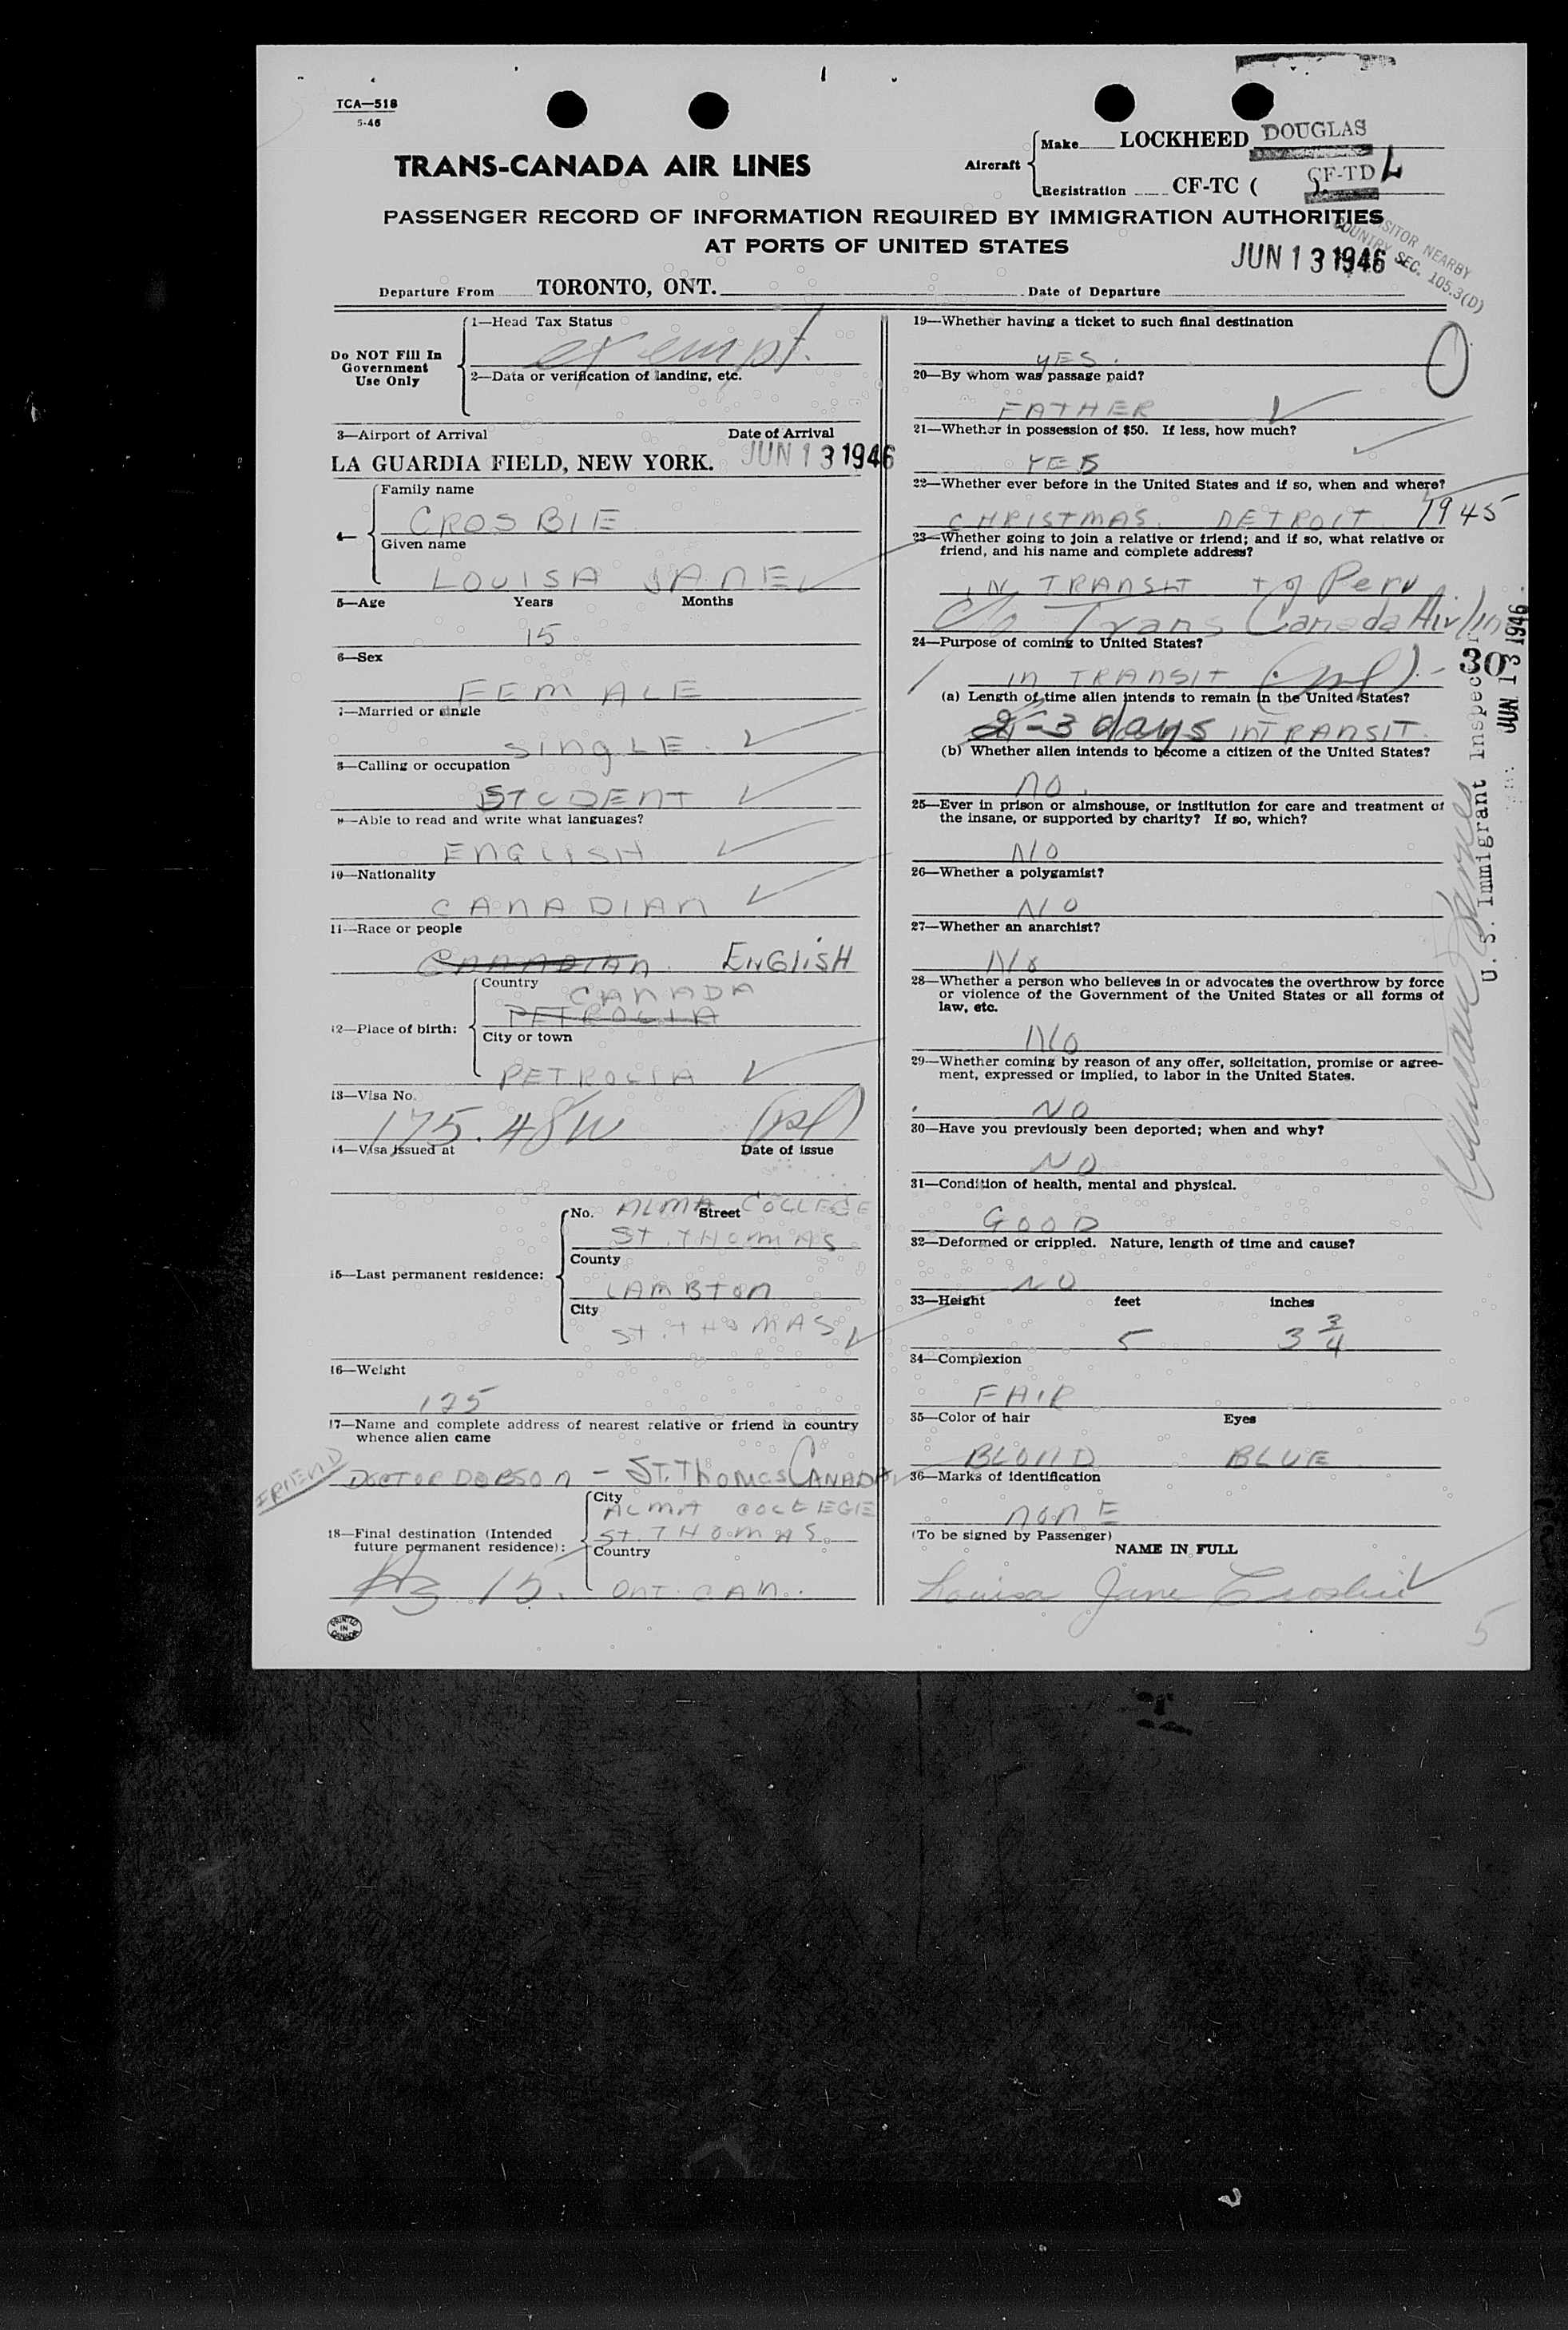 TCA—518
5-46
TRANS-CANADA AIR LINES
Aircraft
Make LOCKHEED DOUGLAS
Registration CF-TC ( ) CF-TD L
PASSENGER RECORD OF INFORMATION REQUIRED BY IMMIGRATION AUTHORITIES
AT PORTS OF UNITED STATES
VISITOR NEARBY
COUNTRY SEC. 105.3(D)
JUN 13 1946
Departure From TORONTO, ONT. Date of Departure
Do NOT Fill In
Government
Use Only
1—Head Tax Status
exempt.
2—Data or verification of landing, etc.
3—Airport of Arrival Date of Arrival
LA GUARDIA FIELD, NEW YORK. JUN 13 1946
4—
Family name
CROSBIE
Given name
LOUISA JANE
5—Age Years Months
15
6—Sex
FEMALE
7—Married or single
SINGLE
8—Calling or occupation
STUDENT
9—Able to read and write what languages?
ENGLISH
10—Nationality
CANADIAN
11—Race or people
CANADIAN ENGLISH
12—Place of birth:
Country
CANADA
PETROLIA
City or town
PETROLIA
13—Visa No.
175.48
14—Visa issued at Date of issue
15—Last permanent residence:
No. ALMA Street COLLEGE
ST. THOMAS
County
LAMBTON
City
ST. THOMAS
16—Weight
125
17—Name and complete address of nearest relative or friend in country
whence alien came
FRIEND
DOCTOR DOBSON - ST. THOMAS CANADA
18—Final destination (Intended
future permanent residence):
City
ALMA COLLEGE
ST. THOMAS
Country
15. ONT. CAN.
PRINTED
IN
CANADA
19—Whether having a ticket to such final destination
YES.
20—By whom was passage paid?
FATHER
21—Whether in possession of $50. If less, how much?
YES
22—Whether ever before in the United States and if so, when and where?
CHRISTMAS. DETROIT 1945
23—Whether going to join a relative or friend; and if so, what relative or
friend, and his name and complete address?
IN TRANSIT to Peru
c/o Trans Canada Air Lin
24—Purpose of coming to United States?
IN TRANSIT
(a) Length of time alien intends to remain in the United States?
2-3 days IN TRANSIT.
(b) Whether alien intends to become a citizen of the United States?
NO.
25—Ever in prison or almshouse, or institution for care and treatment of
the insane, or supported by charity? If so, which?
NO
26—Whether a polygamist?
NO
27—Whether an anarchist?
No
28—Whether a person who believes in or advocates the overthrow by force
or violence of the Government of the United States or all forms of
law, etc.
NO
29—Whether coming by reason of any offer, solicitation, promise or agree-
ment, expressed or implied, to labor in the United States.
NO
30—Have you previously been deported; when and why?
NO
31—Condition of health, mental and physical.
GOOD
32—Deformed or crippled. Nature, length of time and cause?
NO
33—Height feet inches
5 3 3/4
34—Complexion
FAIR
35—Color of hair Eyes
BLOND BLUE
36—Marks of identification
NONE
(To be signed by Passenger)
NAME IN FULL
Louisa Jane Crosbie
5
U. S. Immigrant Inspector
30
JUN 13 1946